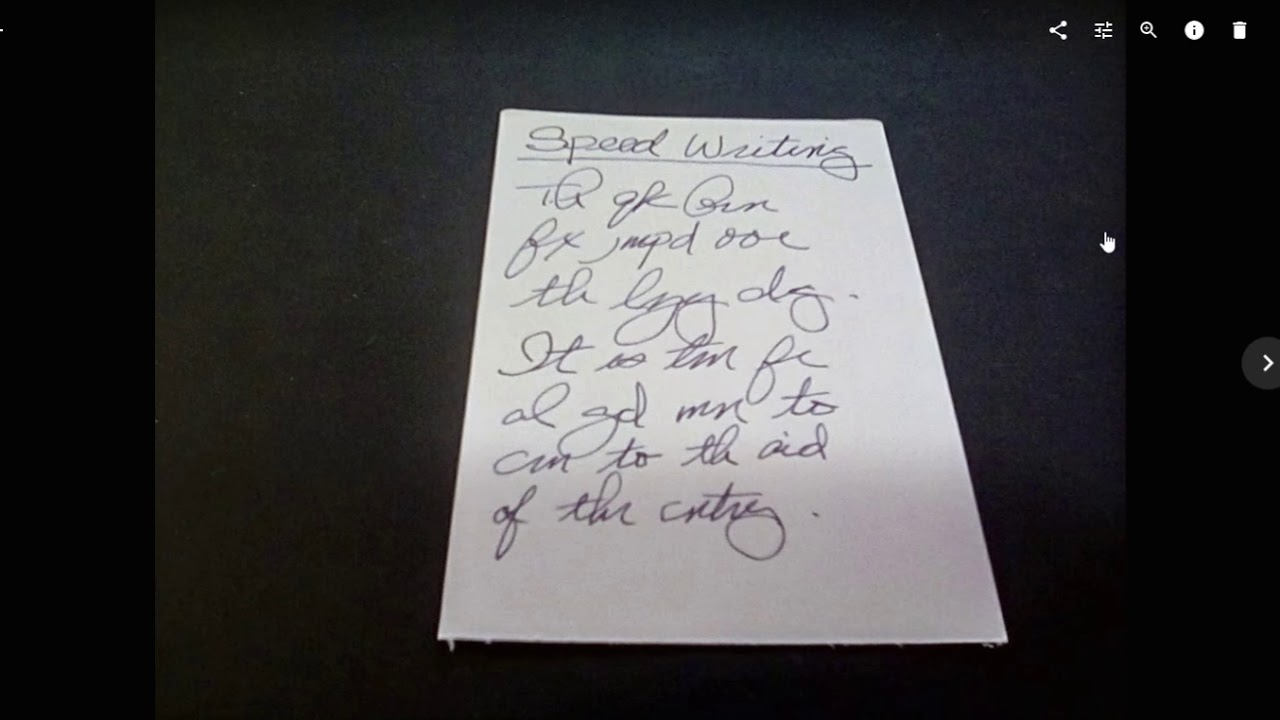 Speed Writing
Th qk brn
fx jmpd ovr
th lzy dg.
It is tm fr
al gd mn to
cm to th aid
of thr cntry.